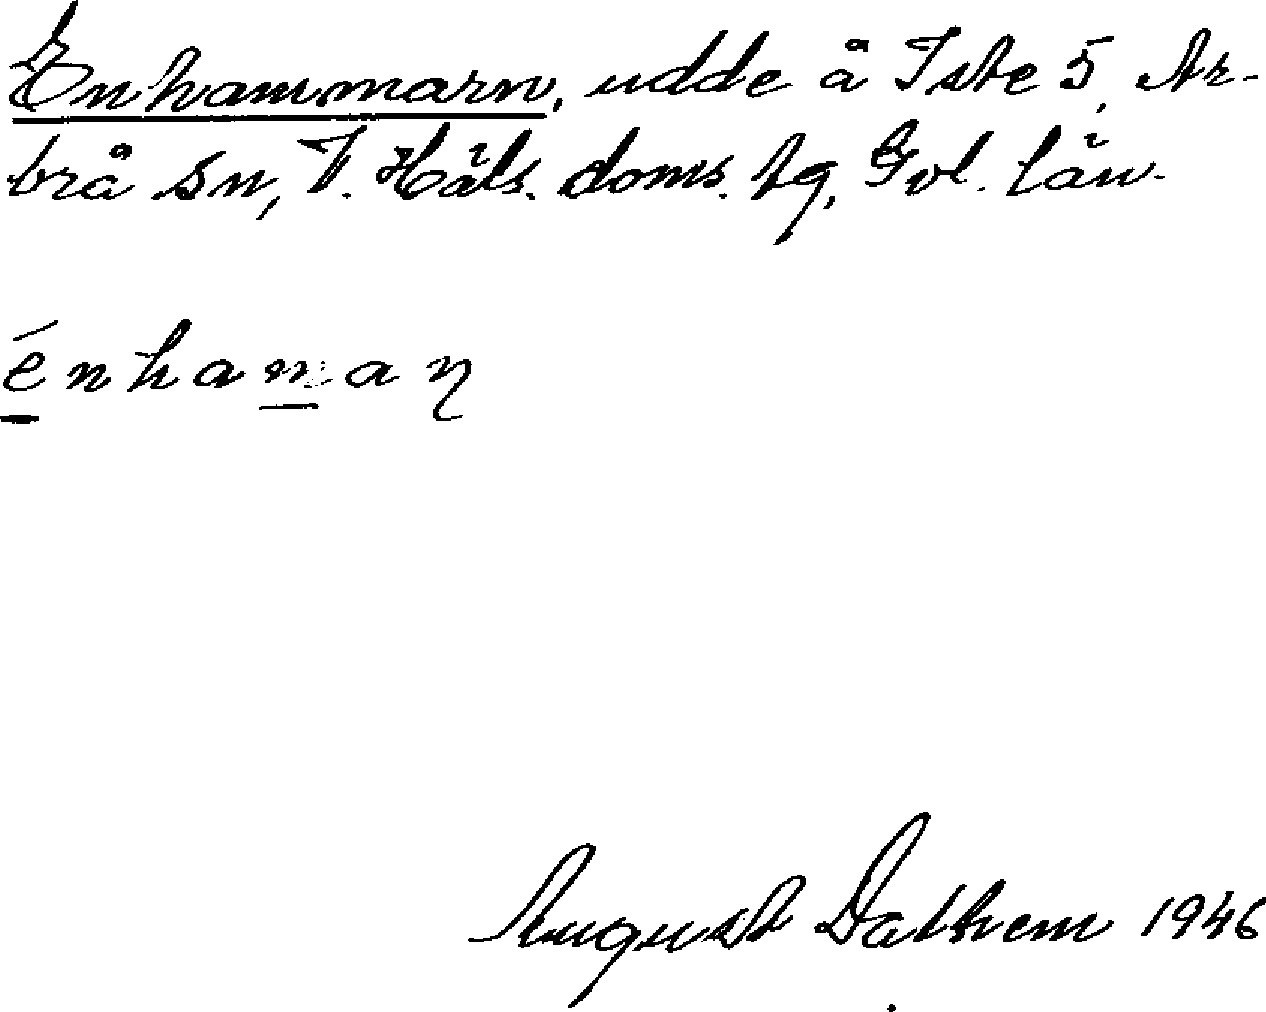 Enhammarn, udde å Iste 5, Ar-
brå sn, V. Häls. doms. tg, Gvl. län.
énhamaɳ
August Dathem 1946